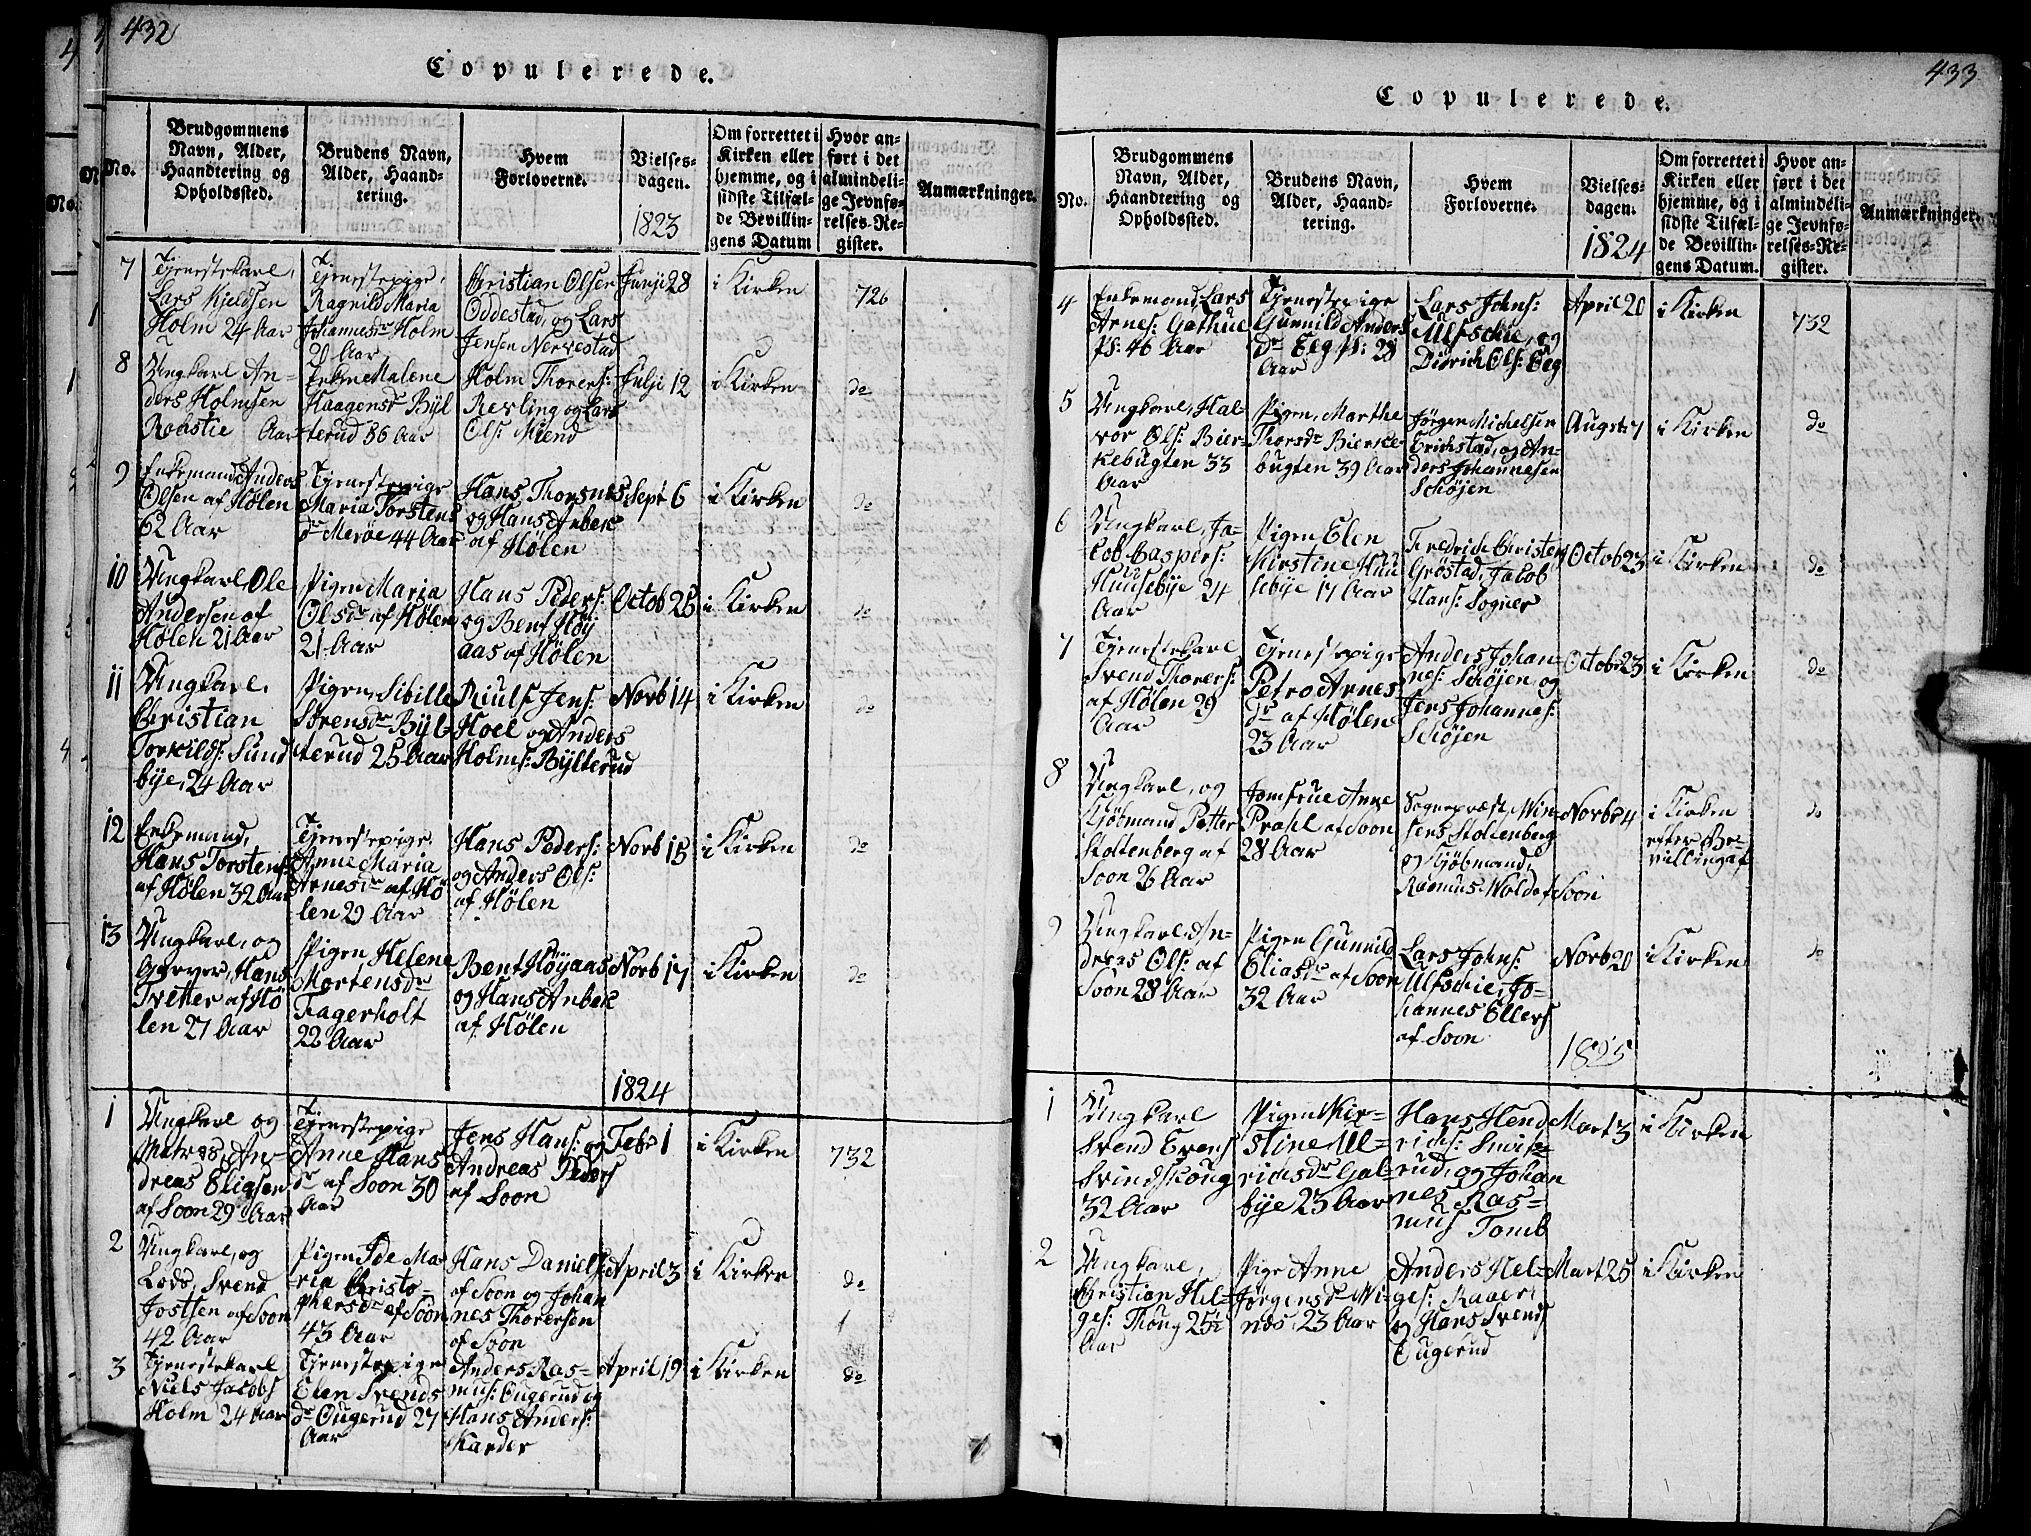 432
Copulerede.
No.
Brudgommens
Navn, Alder,
Haandtering og
Opholdssted.
Brudens Navn,
Alder, Haand-
tering.
Hvem
Forloverne.
Vielses-
dagen.
1823
Om forrettet i
Kirken eller
hjemme, og i
sidste Tilfæl-
de Bevillin-
gens Datum
Hvor an-
ført i det
almindeli-
ge Jevnfø-
relses-Re-
gister.
Anmærkninger.
7
Tjenestekarl,
Lars Kjeldsen
Holm 24 Aar
Tjenestepige,
Ragnild Maria
Johannesdr Holm
20 Aar
Christian Olsen
Oddestad, og Lars
Jensen Nervestad
Junji 28
i Kirken
726
8
Ungkarl An-
ders Holmsen
Aar
Enke Malene
Haagensdr Byl
terud 36 Aar
Holm Thorers:
Revling og Lars
Ols: Miend
Julji 12
i Kirken
do
9
Enkemand Anders
Olsen af Hølen
62 Aar
Tjenestepige
Maria Torstens
dr Merøe 44 Aar
Hans Thorsnes
og Hans Anbek
af Hølen
Sept 6
i Kirken
do
10
Ungkarl Ole
Andersen af
Hølen 21 Aar
Pigen Maria
Olsdr af Hølen
21 Aar
Hans Peders:
og Bent Høy
aas af Hølen
Octob 25
i Kirken
do
11
Ungkarl,
Christian
Torkilds: Sund
bye, 24 Aar
Pigen, Sibille
Sørensdr Byl-
terud 25 Aar
Riulf Jens:
Hoel og Anders
Holms: Bylterud
Norb 14
i Kirken
do
12
Enkemand,
Hans Torstens
af Hølen 32 Aar
Tjenestepige,
Anne Maria
Arnesdr af Hø
len 29 Aar
Hans Peders:
og Anders Ols:
af Hølen
Norb 15
i Kirken
do
13
Ungkarl, og
Garver, Hans
Tvetter af Hø
len 27 Aar
Pigen Helene
Mortensdr
Fagerholt
22 Aar
Bent Høyaas
og Hans Anbek
af Hølen
Norb 17
i Kirken
do
1824
1
Ungkarl og
Matros, An-
dreas Eliasen
af Soon 29 Aar
Tjenestepige
Anne Hans
dr af Soon 30
Aar
Jens Hans: og
Andreas Peders
af Soon
Febr 1
i Kirken
732
2
Ungkarl, og
Lods, Svend
Jostsen af Soon
42 Aar
Pigen Ide Ma
ria Christo-
phersdr af Soon
43 Aar
Hans Daniels:
af Soon og Johan
nes Thorersen
af Soon
April 3
i Kirken
do
3
Tjenestekarl
Niels Jacobs
Holm 24 Aar
Tjenestepige
Elen Svends
dr Ougerud 27
Aar
Anders Ras-
mus: Ougerud og
Hans Anders:
Karder
April 19
i Kirken
do
433
Copulerede.
No.
Brudgommens
Navn, Alder,
Haandtering og
Opholdssted.
Brudens Navn,
Alder, Haand-
tering.
Hvem
Forloverne.
Vielses-
dagen.
1824
Om forrettet i
Kirken eller
hjemme, og i
sidste Tilfæl-
de Bevillin-
gens Datum.
Hvor an-
ført i det
almindeli-
ge Jevnfø-
relses-Re-
gister.
Anmærkninger.
4
Enkemand, Lars
Arnes: Gathue
Ps: 46 Aar
Tjenestepige
Gunnild Anders
dr Eeg Ps: 28
Aar
Lars Johns:
Ulfschie, og
Didrich Ols: Eeg
April 20
i Kirken
732
5
Ungkarl, Hal-
vor Ols: Bier-
kebugten 33
Aar
Pigen, Marthe
Thorsdr Bierke-
bugten 39 Aar
Jørgen Michelsen
Erichstad, og An-
ders Johannesen
Schøjen
August 7
i Kirken
do
6
Ungkarl, Ja-
cob Caspers:
Huusebye 24
Aar
Pigen Elen
Kirstine Huu
sebye 17 Aar
Fredrich Christen
Grøstad, Jacob
Hans: Sogner
Octob 23
i Kirken
do
7
Tjenestekarl
Svend Thorers:
af Hølen 29
Aar
Tjenestepige
Petro Arnes
dr af Hølen
23 Aar
Anders Johan-
nes: Schøjen, og
Jens Johannes:
Schøjen
Octobr 23
i Kirken
do
8
Ungkarl, og
Kjøbmand Petter
Stoltenberg af
Soon 26 Aar
Jomfrue Anne
Prahl af Soon
28 Aar
Sognepræst Win-
sens Stoltenberg
og Kjøbmand,
Rasmus Wold af Soon
Norbr 4
i Kirken
efter Be-
villing af
do
9
Ungkarl An-
dreas Ols: af
Soon 28 Aar
Pigen Gunnild
Eliasdr af Soon
32 Aar
Lars Johns:
Ulfschie, Jo-
hannes Ellers
af Soon
Norb 20
i Kirken
do
1825
1
Ungkarl
Svend Evens
Svindskoug
32 Aar
Pigen Kir-
stine Ul-
richsdr Gal-
bye 23 Aar
Hans Hend
richs: Smik-
rud, og Johan
nes Ras-
mus Tomb
Mart 3
i Kirken
2
Ungkarl,
Christian Hel-
ges: Thoug 25½
Aar
Pige Anne
Jørgensdr Wi-
nøs, 23 Aar
Anders Hel-
ges: Raaer,
og Hans Svends
Ougerud
Mart 25
i Kirken